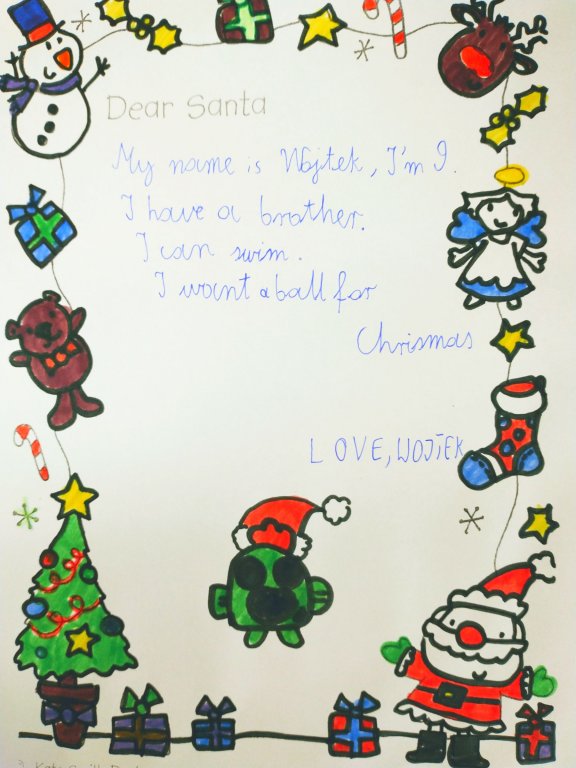 Dear Santa
My name is Wojtek, I'm 9.
I have a brother.
I can swim.
I want a ball for
Chrismas
LOVE, WOJTEK